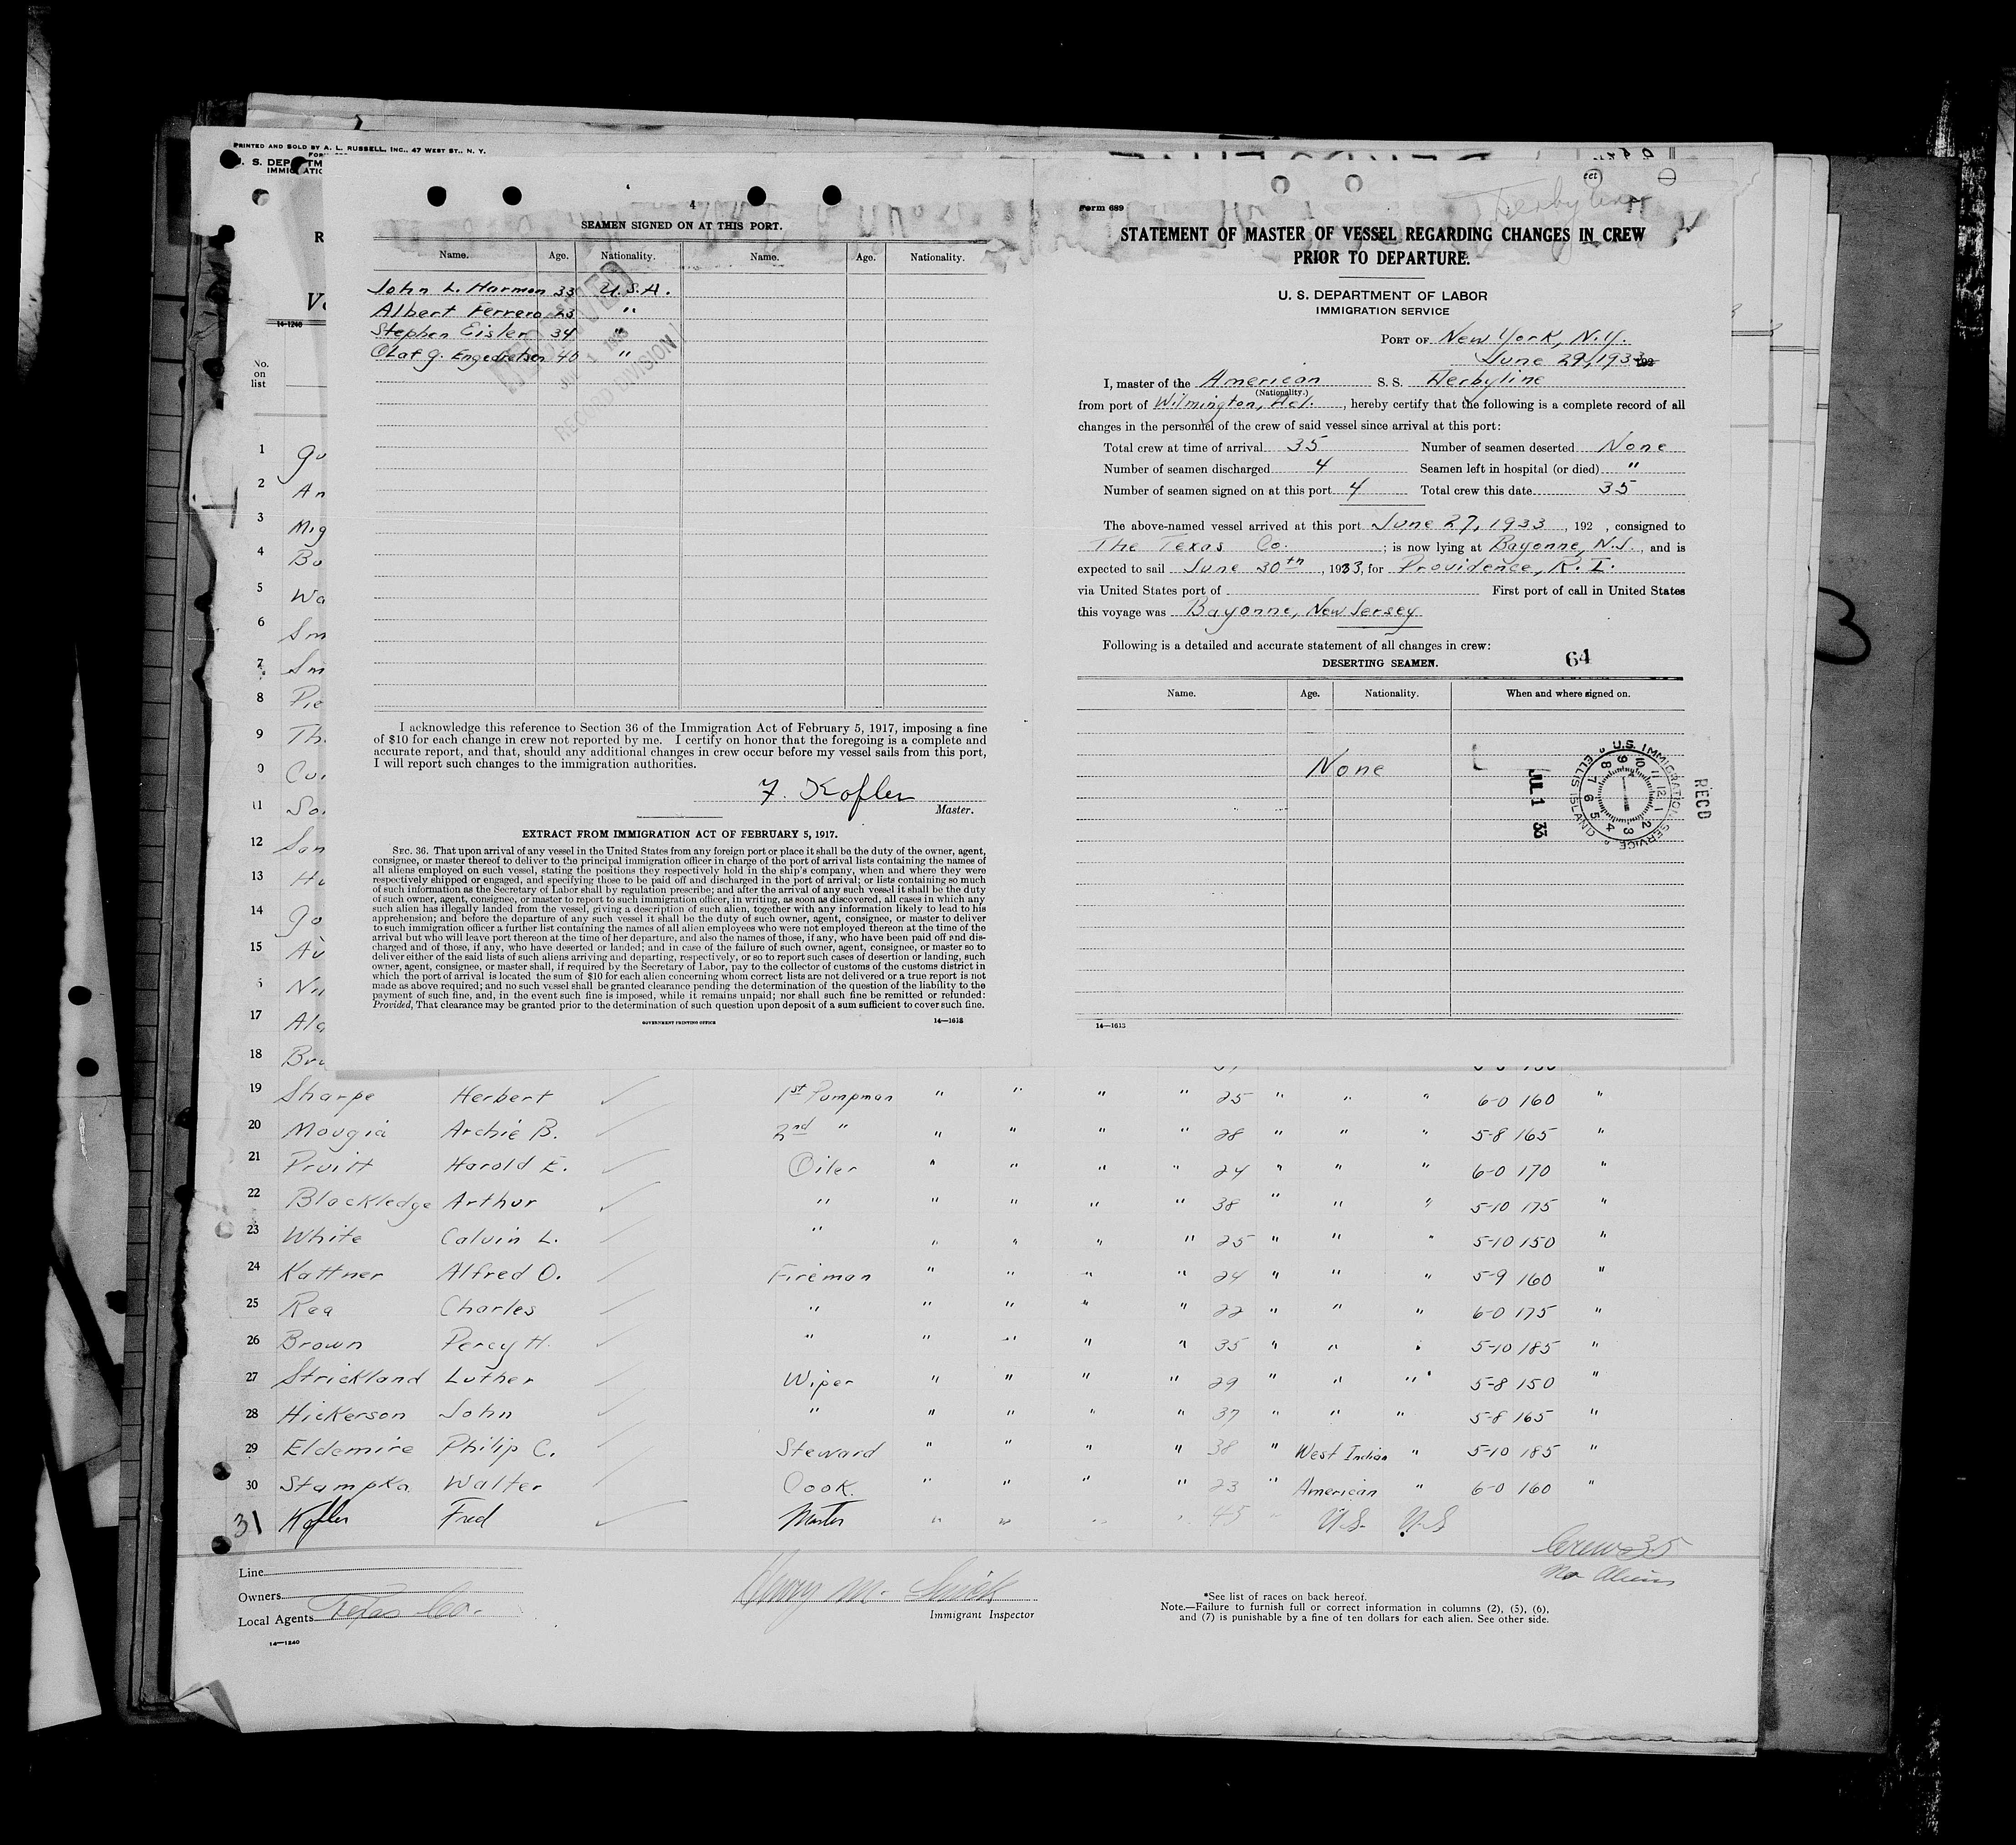 PRINTED AND SOLD BY A. L. RUSSELL, INC., 47 WEST ST., N. Y.
14-1240
No.
on
list
4
SEAMEN SIGNED ON AT THIS PORT.
Name. Age. Nationality. Name. Age. Nationality.
John L. Harmon 33 U.S.A.
Albert Ferrero 23 "
Stephen Eisler 34 "
Olaf G. Engebretsen 40 "
RECORD DIVISION
I acknowledge this reference to Section 36 of the Immigration Act of February 5, 1917, imposing a fine
of $10 for each change in crew not reported by me. I certify on honor that the foregoing is a complete and
accurate report, and that, should any additional changes in crew occur before my vessel sails from this port,
I will report such changes to the immigration authorities.
F. Kofler
Master.
EXTRACT FROM IMMIGRATION ACT OF FEBRUARY 5, 1917.
SEC. 36. That upon arrival of any vessel in the United States from any foreign port or place it shall be the duty of the owner, agent,
consignee, or master thereof to deliver to the principal immigration officer in charge of the port of arrival lists containing the names of
all aliens employed on such vessel, stating the positions they respectively hold in the ship's company, when and where they were
respectively shipped or engaged, and specifying those to be paid off and discharged in the port of arrival; or lists containing so much
of such information as the Secretary of Labor shall by regulation prescribe; and after the arrival of any such vessel it shall be the duty
of such owner, agent, consignee, or master to report to such immigration officer, in writing, as soon as discovered, all cases in which any
such alien has illegally landed from the vessel, giving a description of such alien, together with any information likely to lead to his
apprehension; and before the departure of any such vessel it shall be the duty of such owner, agent, consignee, or master to deliver
to such immigration officer a further list containing the names of all alien employees who were not employed thereon at the time of the
arrival but who will leave port thereon at the time of her departure, and also the names of those, if any, who have been paid off and dis-
charged and of those, if any, who have deserted or landed; and in case of the failure of such owner, agent, consignee, or master so to
deliver either of the said lists of such aliens arriving and departing, respectively, or so to report such cases of desertion or landing, such
owner, agent, consignee, or master shall, if required by the Secretary of Labor, pay to the collector of customs of the customs district in
which the port of arrival is located the sum of $10 for each alien concerning whom correct lists are not delivered or a true report is not
made as above required; and no such vessel shall be granted clearance pending the determination of the question of the liability to the
payment of such fine, and, in the event such fine is imposed, while it remains unpaid; nor shall such fine be remitted or refunded:
Provided, That clearance may be granted prior to the determination of such question upon deposit of a sum sufficient to cover such fine.
GOVERNMENT PRINTING OFFICE 14—1613
Derbyline
Form 689
STATEMENT OF MASTER OF VESSEL REGARDING CHANGES IN CREW
PRIOR TO DEPARTURE.
U. S. DEPARTMENT OF LABOR
IMMIGRATION SERVICE
PORT OF New York, N.Y.
June 29, 1933 192
I, master of the American S. S. Derbyline
(Nationality.)
from port of Wilmington, Del. , hereby certify that the following is a complete record of all
changes in the personnel of the crew of said vessel since arrival at this port:
Total crew at time of arrival 35 Number of seamen deserted None
Number of seamen discharged 4 Seamen left in hospital (or died) "
Number of seamen signed on at this port 4 Total crew this date 35
The above-named vessel arrived at this port June 27, 1933 , 192 , consigned to
The Texas Co. ; is now lying at Bayonne, N.J. , and is
expected to sail June 30th , 1933, for Providence, R. I.
via United States port of First port of call in United States
this voyage was Bayonne, New Jersey
Following is a detailed and accurate statement of all changes in crew:
DESERTING SEAMEN. 64
Name. Age. Nationality. When and where signed on.
None
U.S. IMMIGRATION SERVICE ELLIS ISLAND
RECD
JUL 1 33
14—1613
3
1 Gu
2 An
3 Mig
4 Bo
5 Wa
6 Sm
7 Sm
8 Pie
9 Th
0 Cu
11 So
12 San
13 Hu
14 Go
15 Au
17 Ala
18 Bro
19 Sharpe Herbert 1st Pumpman " " " " 25 " " " 6-0 160 "
20 Mougia Archie B. 2nd " " " " " 28 " " " 5-8 165 "
21 Pruitt Harold E. Oiler " " " " 24 " " " 6-0 170 "
22 Blackledge Arthur " " " " " 38 " " " 5-10 175 "
23 White Calvin L. " " " " " 25 " " " 5-10 150 "
24 Kattner Alfred O. Fireman " " " " 24 " " " 5-9 160 "
25 Rea Charles " " " " " 22 " " " 6-0 175 "
26 Brown Percy H. " " " " " 35 " " " 5-10 185 "
27 Strickland Luther Wiper " " " " 29 " " " 5-8 150 "
28 Hickerson John " " " " " 37 " " " 5-8 165 "
29 Eldemire Philip C. Steward " " " " 38 " West Indian " 5-10 185 "
30 Stampka Walter Cook. " " " " 23 " American " 6-0 160 "
31 Kofler Fred Master " " " " 45 " U.S. U.S
Crew 35
No Aliens
Line
Owners
Local Agents Texas Co.
Immigrant Inspector
*See list of races on back hereof.
Note.—Failure to furnish full or correct information in columns (2), (5), (6),
and (7) is punishable by a fine of ten dollars for each alien. See other side.
14—1240